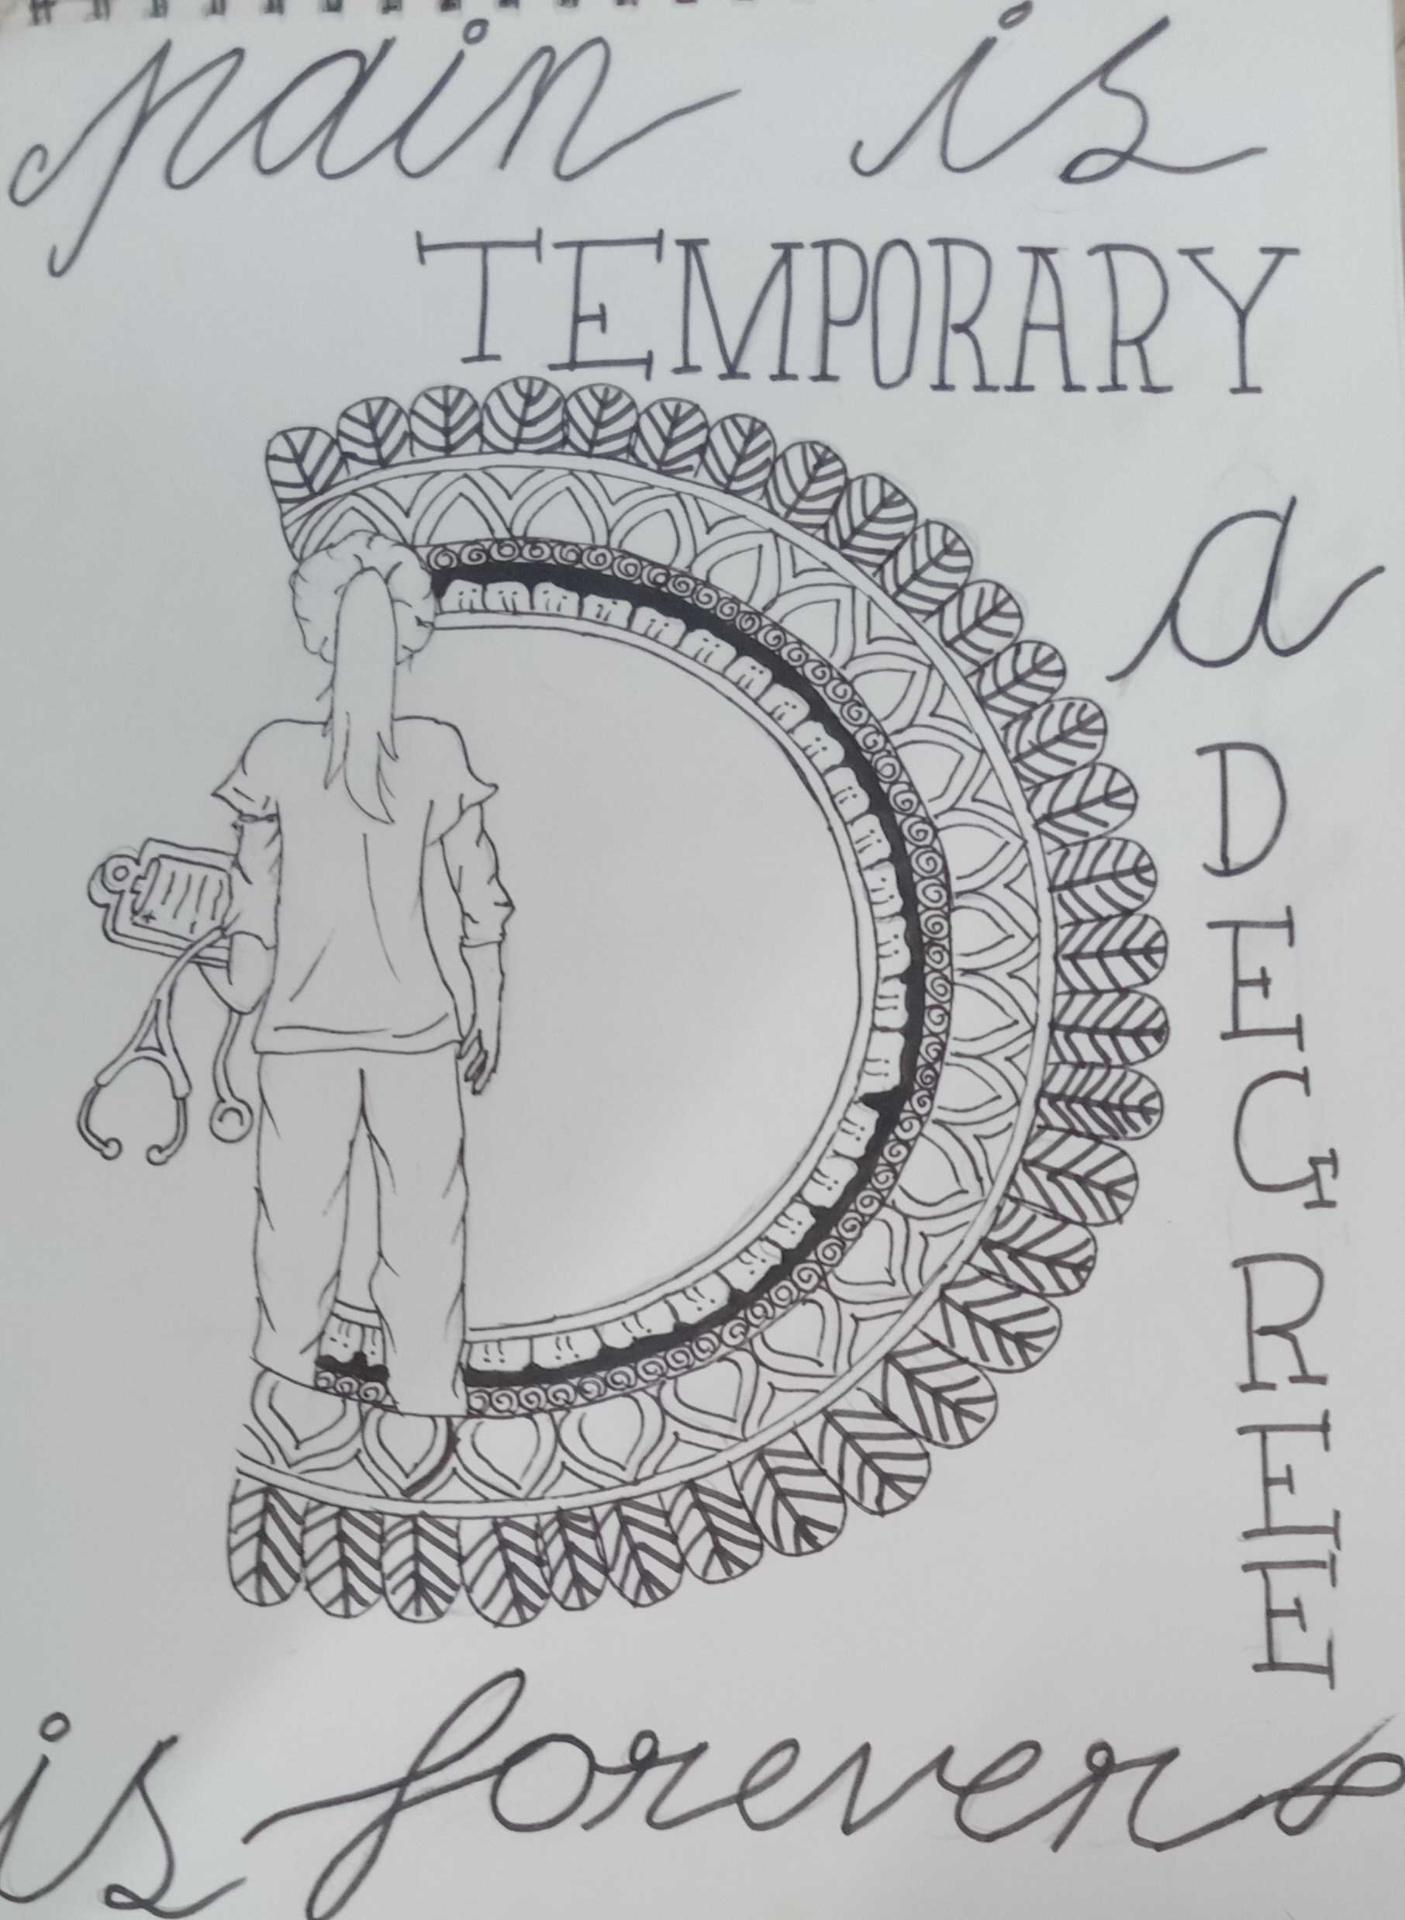 pain is
TEMPORARY
a
DEGREE
is forever